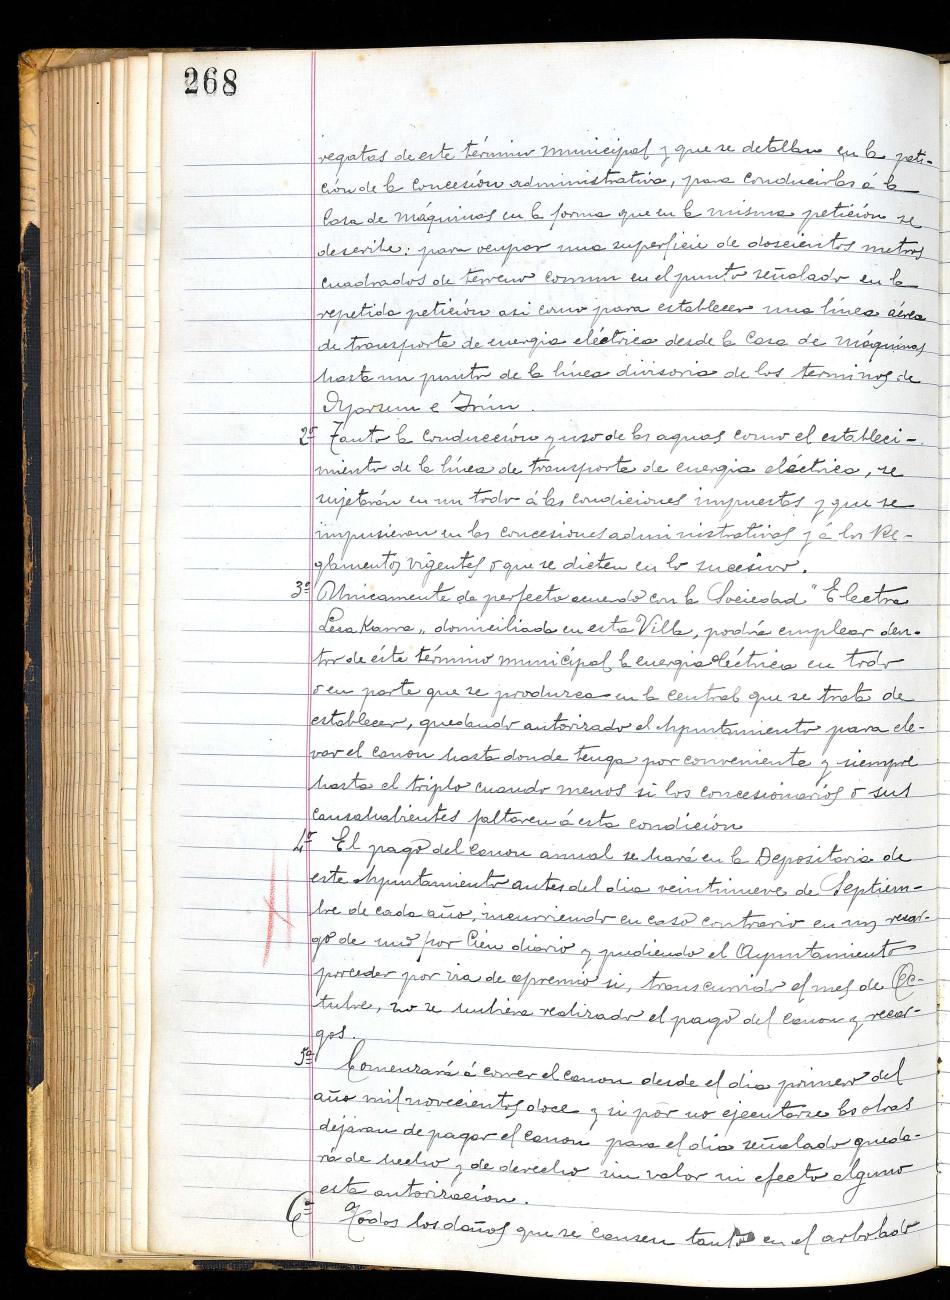 268
regatas de este término municipal y que se detallan en la peti-
ción de la concesión administrativa, para conducirlas á la
Casa de máquinas en la forma que en la misma petición se
describe: para ocupar una superficie de doscientos metros
cuadrados de terreno comun en el punto señalado en la
repetida petición asi como para establecer una línea aérea
de transporte de energia eléctrica desde la Casa de máquinas
hasta un punto de la línea divisoria de los terminos de
Oyarzun e Irún.
2ª Tanto la conducción y uso de las aguas como el estableci-
miento de la línea de transporte de energia eléctrica, se
sujetarán en un todo á las condiciones impuestas y que se
impusieran en las concesiones administrativas y á los Re-
glamentos vigentes ó que se dicten en lo sucesivo.
3ª Unicamente de perfecto acuerdo con la Sociedad "Electra
Lesakarra" domiciliada en esta Villa, podrá emplear den-
tro de éste término municipal la energia eléctrica en todo
ó en parte que se produzca en la central que se trata de
establecer, quedando autorizado el Ayuntamiento para ele-
var el canon hasta donde tenga por conveniente y siempre
hasta el triplo cuando menos si los concesionarios ó sus
causahabientes faltaren á esta condición
4ª El pago del canon anual se hará en la Depositaria de
este Ayuntamiento antes del dia veintinueve de Septiem-
bre de cada año, incurriendo en caso contrario en un recar-
go de uno por Cien diario y pudiendo el Ayuntamiento
proceder por via de apremio si, transcurrido el mes de Oc-
tubre, no se hubiera realizado el pago del canon y recar-
gos.
5ª Comenzará á correr el canon desde el dia primero del
año mil novecientos doce y si por no ejecutarse las obras
dejaran de pagar el canon para el dia señalado queda-
rá de hecho y de derecho sin valor ni efecto alguno
esta autorización.
6ª Todos los daños que se causen tanto en el arbolado